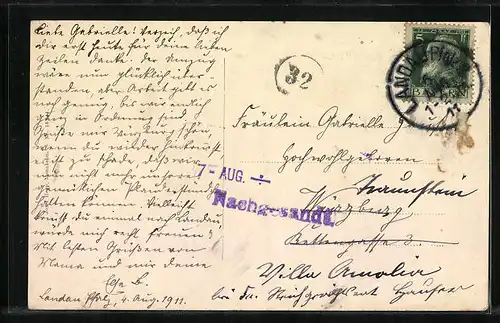 Liebe Gabrielle! Verzeih, daß ich
dir erst heute für deine lieben
Zeilen danke. Der Umzug
wäre nun glücklich über-
standen, aber Arbeit gibt es
noch genug, bis wir endlich
ganz in Ordnung sind
Grüße mir Würzburg schön,
wenn du wieder hinkommst.
es ist zu schade, daß wir
nun nicht mehr unsere
gemütlichen Plauderstunden
halten können. Vielleicht
kommst du einmal nach Landau,
würde mich recht freuen!
Mit besten Grüßen von
Mama und mir deine
Landau Pfalz, 4. Aug. 1911.
32
LANDAU (Pfalz)
BAYERN
Fräulein Gabrielle
Hochwohlgeboren
Traunstein
Würzburg
Kettengasse 3
Villa Amalia
bei
7- AUG.
Nachgesandt.